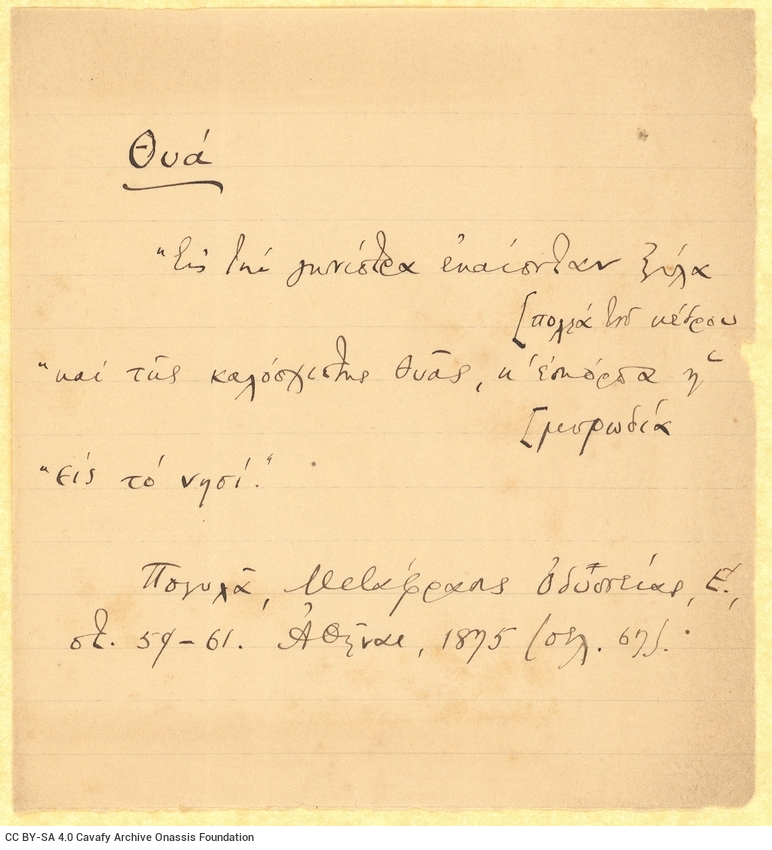 Θυά
"Εἰς τήν γωνίστρα ἐκαίονταν ξύλα
[πολλά τοῦ κέδρου
"καί τῆς καλόσχιστης θυᾶς, κ' ἐσκόρπα ἡ
[μυρωδία
"εἰς τό νησί."
Πολυλᾶ, Μετάφρασις Ὀδυσσείας, Ε΄.,
στ. 59-61. Ἀθῆναι, 1875 (σελ. 67).
CC BY-SA 4.0 Cavafy Archive Onassis Foundation